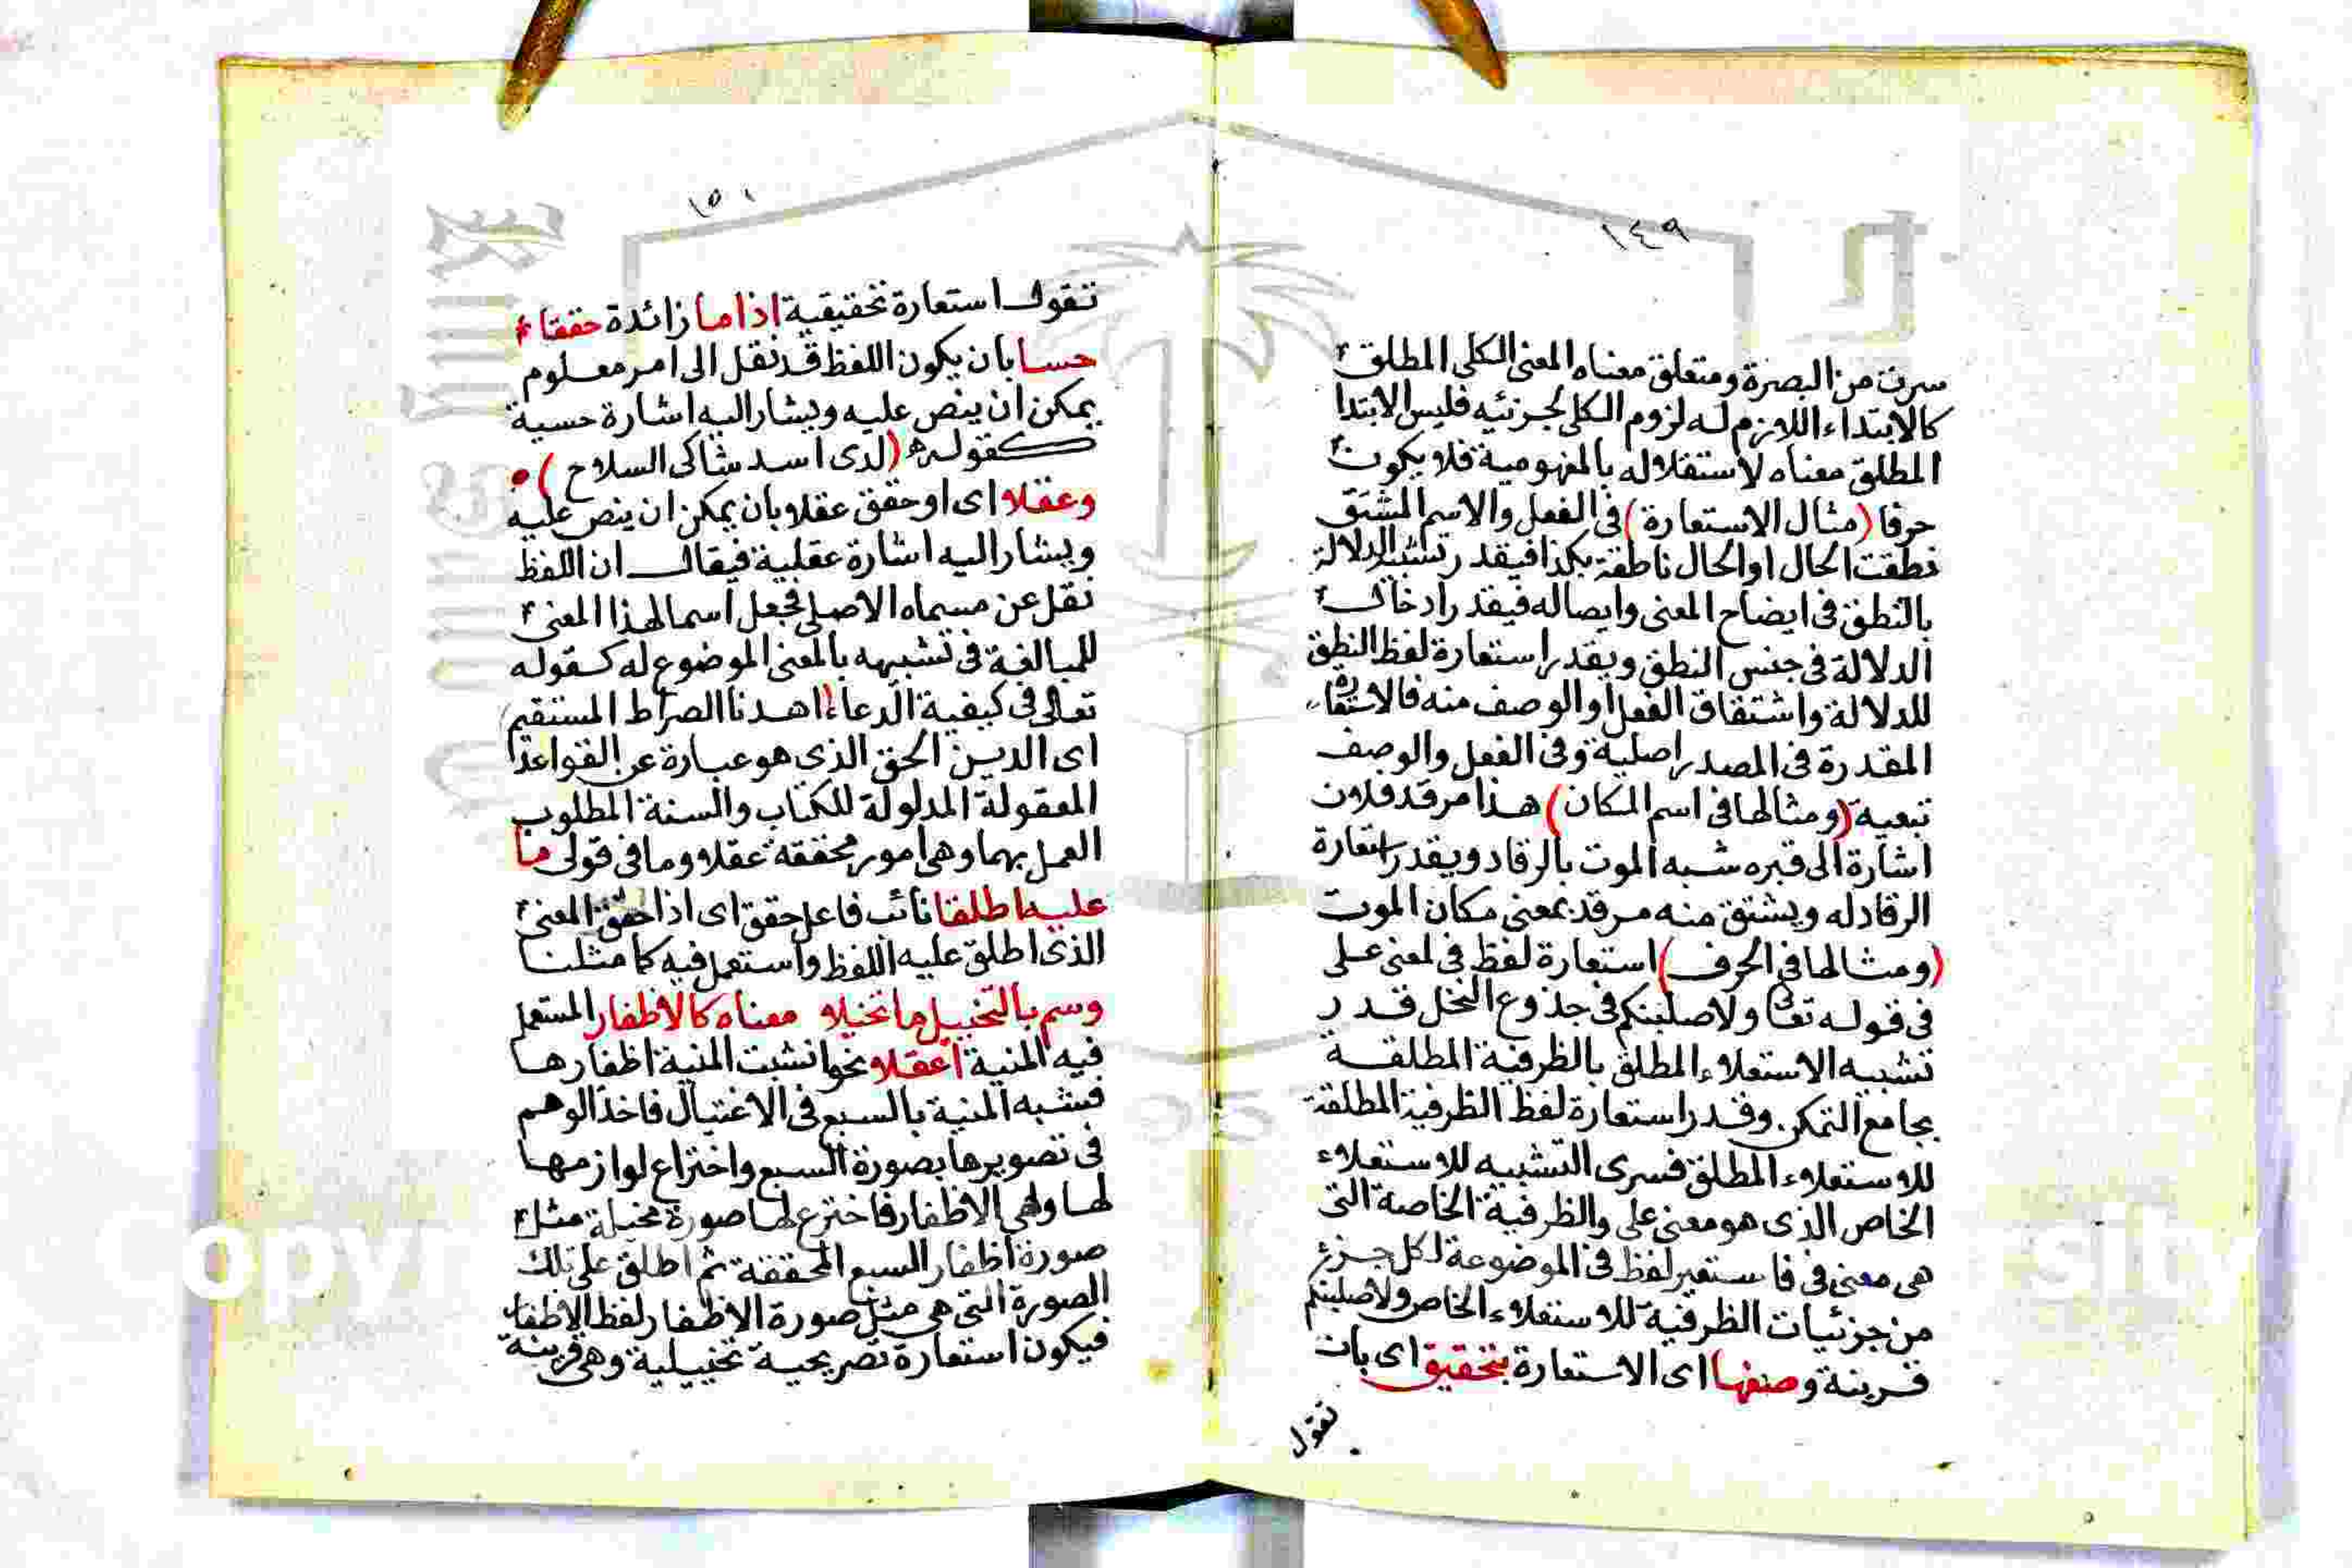 ١٤٩
سرت من البصرة ومتعلق معناه المعنى الكلى المطلق
كالابتداء اللازم له لزوم الكلى لجزئيه فليس الابتدا
المطلق معناه لاستقلاله بالمفهومية فلا يكون
حرفا (مثال الاستعارة) فى الفعل والاسم المشتق
نطقت الحال او الحال ناطقة بكذا فيقدر تشبيه الدلالة
بالنطق فى ايضاح المعنى وايصاله فيقدر ادخال
الدلالة فى جنس النطق ويقدر استعارة لفظ النطق
للدلالة واشتقاق الفعل او الوصف منه فالاستعارة
المقدرة فى المصدر اصلية وفى الفعل والوصف
تبعية (ومثالها فى اسم المكان) هذا مرقد فلان
اشارة الى قبره شبه الموت بالرقاد ويقدر استعارة
الرقاد له ويشتق منه مرقد بمعنى مكان الموت
(ومثالها فى الحرف) استعارة لفظ فى لمعنى على
فى قوله تعالى ولاصلبنكم فى جذوع النخل قدر
تشبيه الاستعلاء المطلق بالظرفية المطلقة
بجامع التمكن وقدر استعارة لفظ الظرفية المطلقة
للاستعلاء المطلق فسرى التشبيه للاستعلاء
الخاص الذى هو معنى على والظرفية الخاصة التى
هى معنى فى فاستعير لفظ فى الموضوعة لكل جزئ
من جزئيات الظرفية للاستعلاء الخاص ولاصلبنكم
قرينة وصنفها اى الاستعارة بتحقيق اى بان
تقول
١٥٠
تقول استعارة تحقيقية اذا ما زائدة حققا
حسا بان يكون اللفظ قد نقل الى امر معلوم
يمكن ان ينص عليه ويشار اليه اشارة حسية
كقوله (لدى اسد شاكى السلاح)
وعقلا اى او حقق عقلا بان يمكن ان ينص عليه
ويشار اليه اشارة عقلية فيقال ان اللفظ
نقل عن مسماه الاصلى فجعل اسما لهذا المعنى
للمبالغة فى تشبيهه بالمعنى الموضوع له كقوله
تعالى فى كيفية الدعاء (اهدنا الصراط المستقيم)
اى الدين الحق الذى هو عبارة عن القواعد
المعقولة المدلولة للكتاب والسنة المطلوب
العمل بهما وهى امور محققة عقلا وما فى قولى ما
عليه اطلقا نائب فاعل حقق اى اذا حقق المعنى
الذى اطلق عليه اللفظ واستعمل فيه كما مثلنا
وسم بالتخييل ما تخيلا معناه كالاظفار المستعمل
فيه المنية اعقلا نحو انشبت المنية اظفارها
فشبه المنية بالسبع فى الاغتيال فاخذ الوهم
فى تصويرها بصورة السبع واختراع لوازمها
لها وهى الاظفار فاخترع لها صورة مخيلة مثل
صورة اظفار السبع المحققة ثم اطلق على تلك
الصورة التى هى مثل صورة الاظفار لفظ الاظفار
فيكون استعارة تصريحية تخييلية وهى قرينة